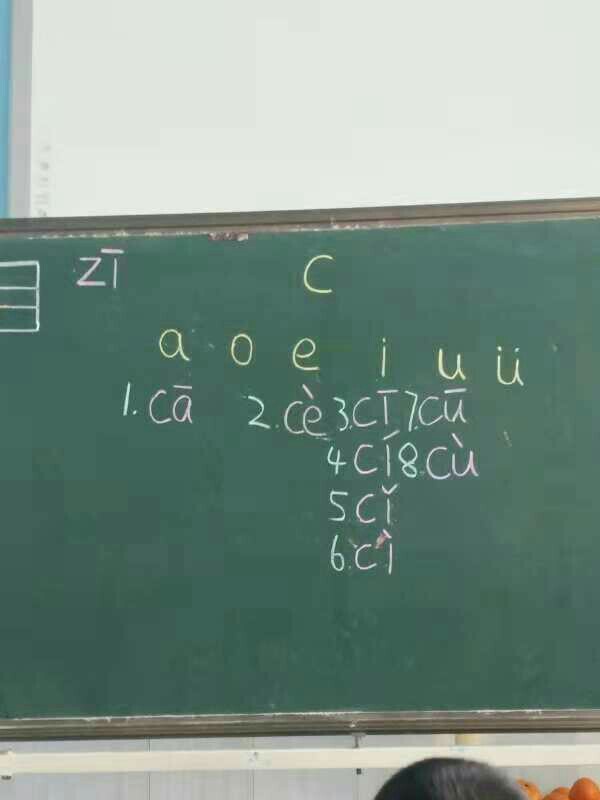 zī c
a o e i u ü
1.cā 2.cè 3.cī 7.cū
4 cí 8.cù
5 cǐ
6.cì